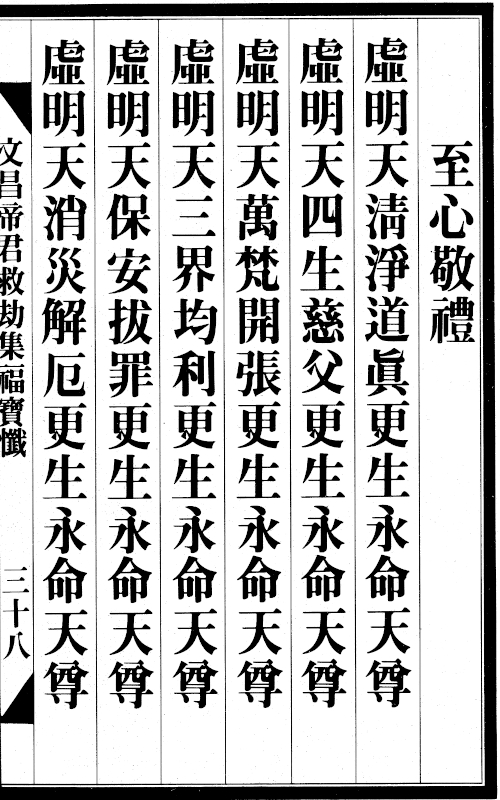 至心敬禮
虛明天清淨道眞更生永命天尊
虛明天四生慈父更生永命天尊
虛明天萬梵開張更生永命天尊
虛明天三界均利更生永命天尊
虛明天保安拔罪更生永命天尊
虛明天消災解厄更生永命天尊
文昌帝君救劫集福寶懺
三十八